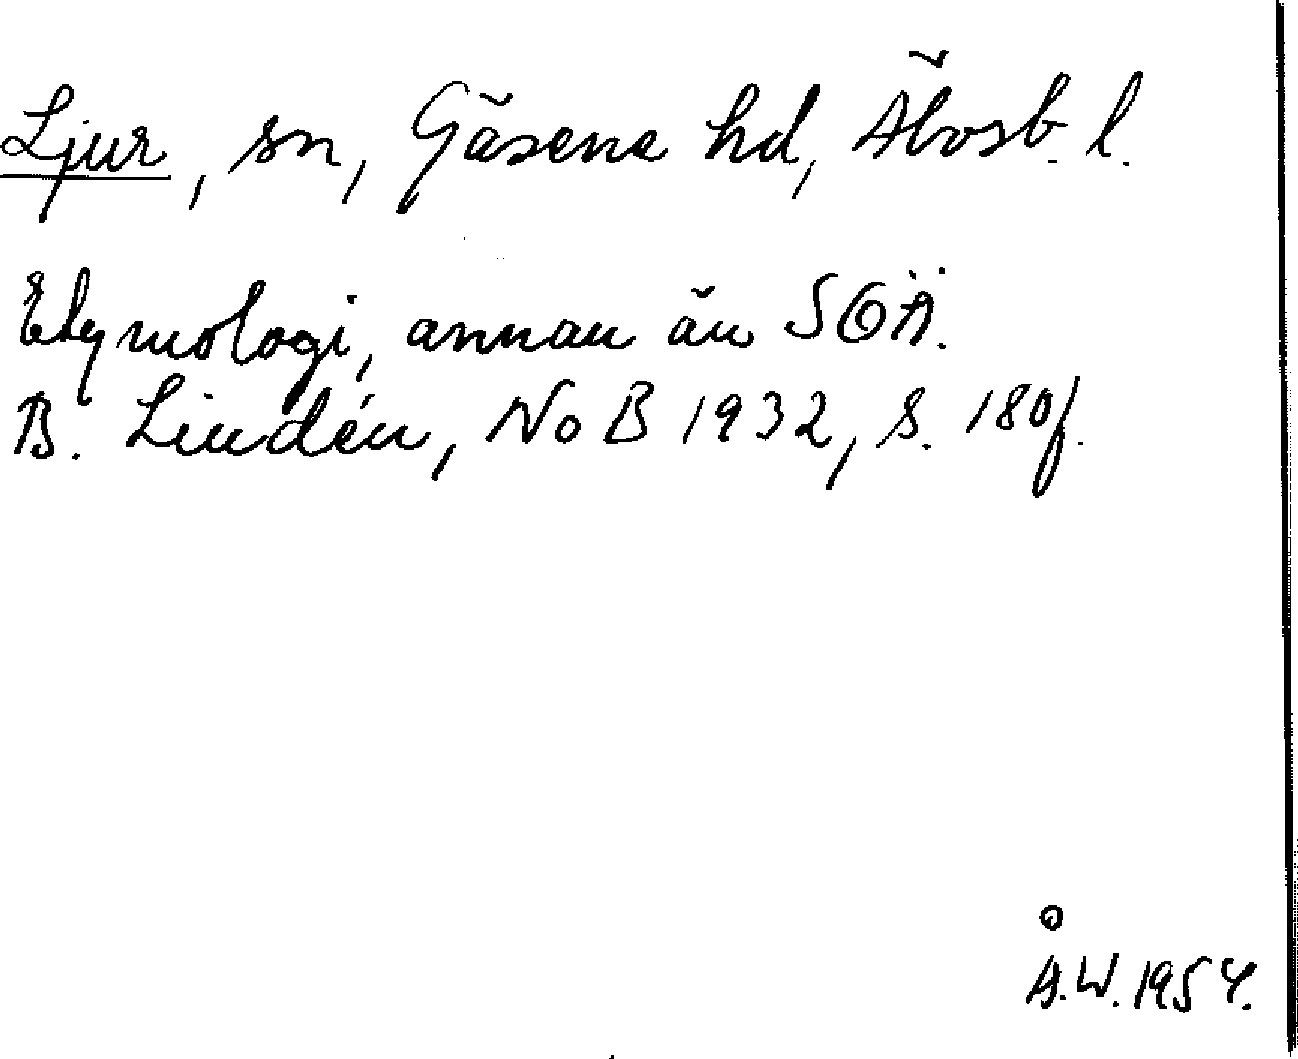 Ljur, sn, Gäsene hd, Älvsb. l.
Etymologi, annan än SOÄ.
B. Lindén, NoB 1932, s. 180f.
Å.W. 1954.